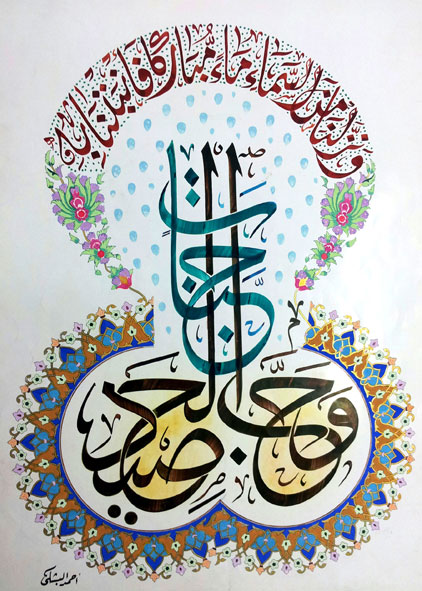 ونزلنا من السماء ماء مباركا فأنبتنا به
جنات
وحب الحصيد
احمد